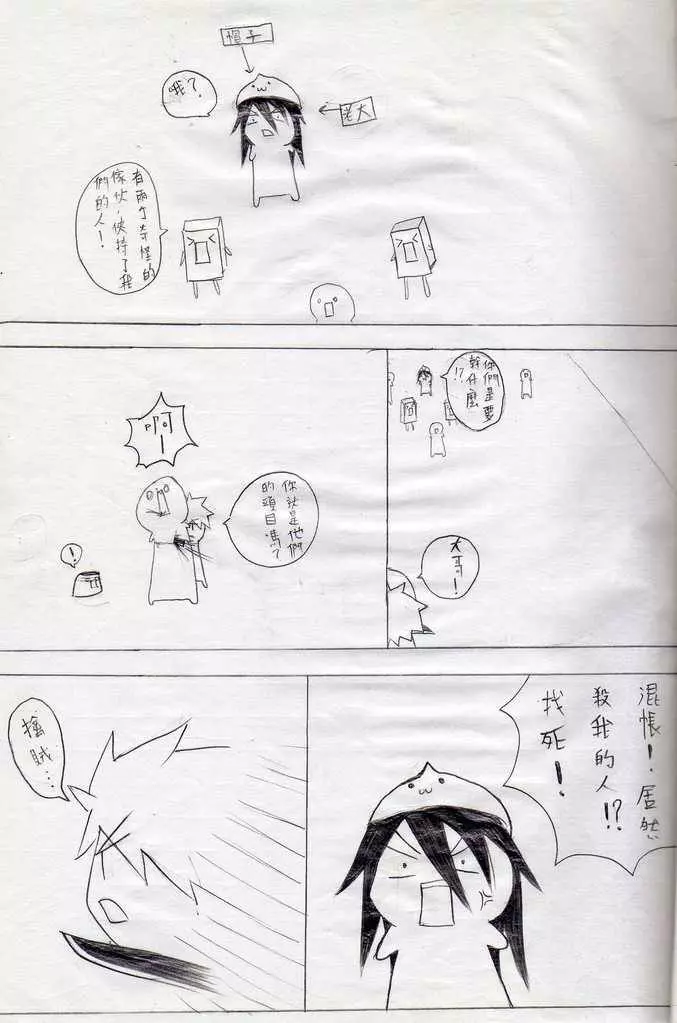 帽子
老大
哦?
有兩个奇怪的
傢伙,挾持了我
們的人!
你們是要
幹什麼
!?
大哥!
啊!
你就是他們
的頭目嗎?
!
混帳!居然
殺我的人!?
找死!
擒賊…